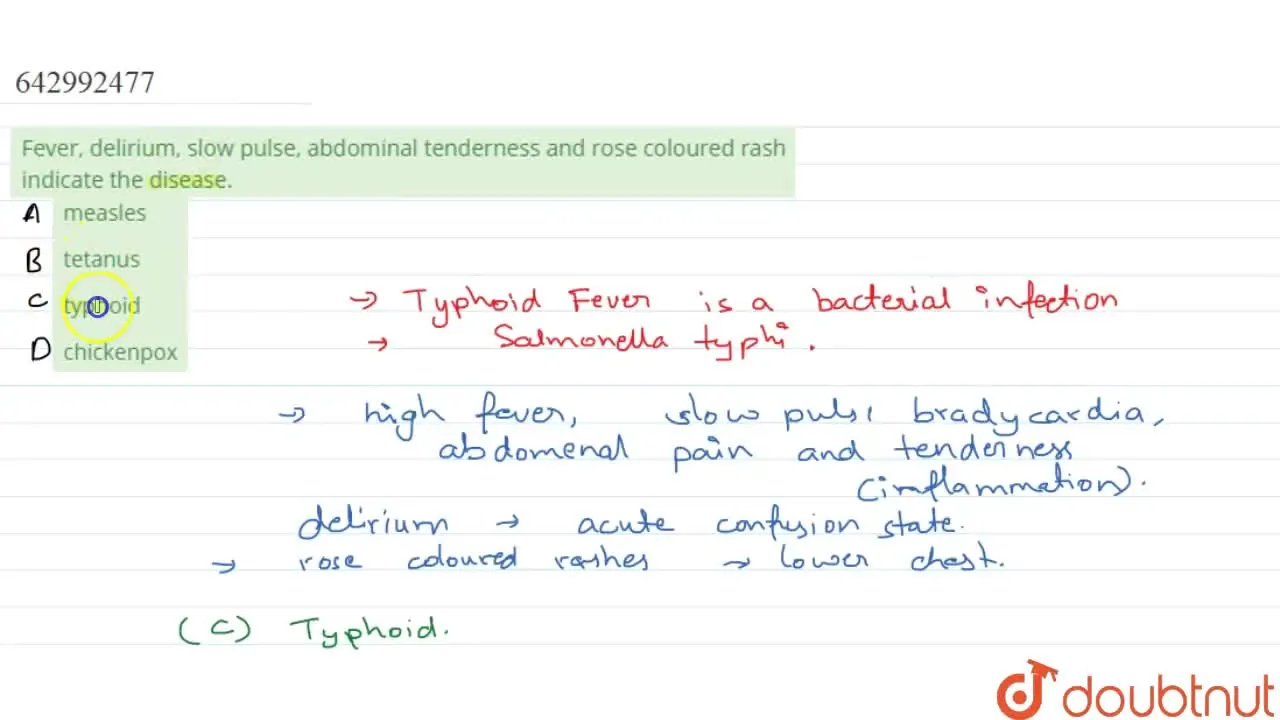 642992477
Fever, delirium, slow pulse, abdominal tenderness and rose coloured rash
indicate the disease.
A measles
B tetanus
C typhoid
D chickenpox
→ Typhoid Fever is a bacterial infection
→ Salmonella typhi.
→ high fever, slow puls, bradycardia,
abdomenal pain and tenderness
(inflammation).
delirium → acute confusion state.
→ rose coloured rashes → lower chest.
(C) Typhoid.
doubtnut